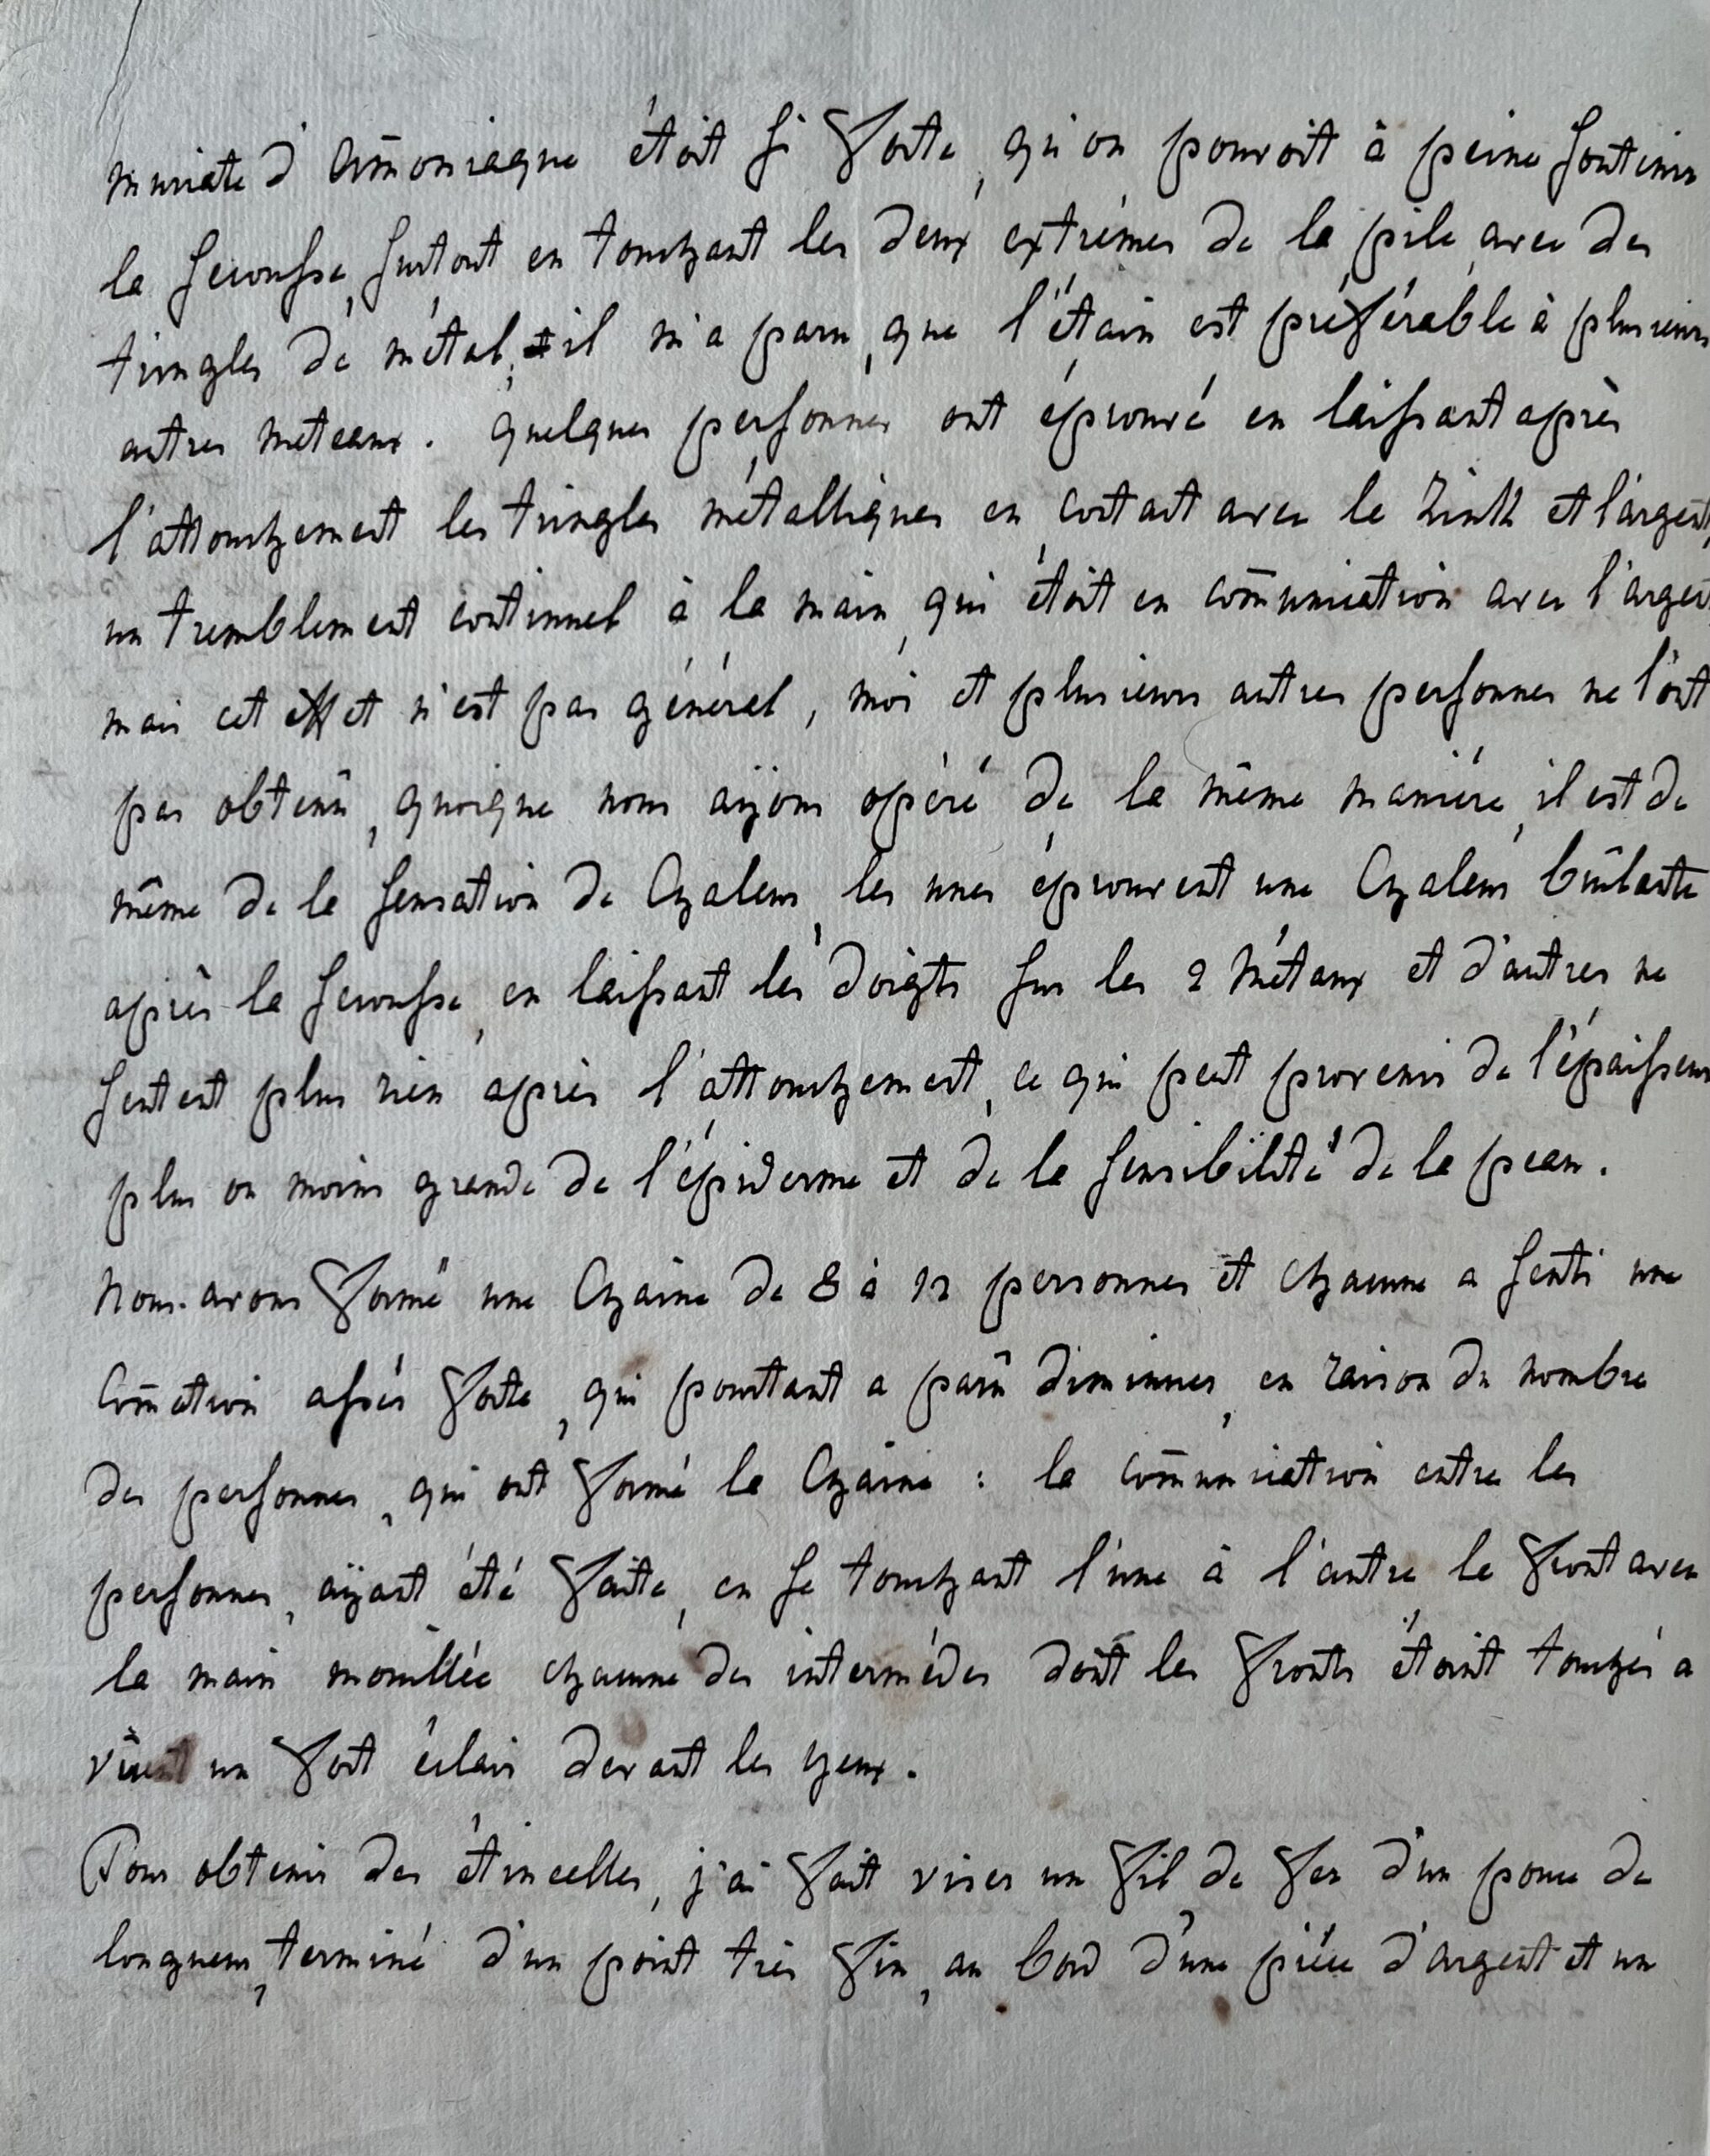 muriate d'Am̄oniaque étoit si forte, qu'on pouvoit à peine soutenir
la secousse, surtout en touchant les deux extrémes de la pile avec des
tringles de métal, il m'a paru, que l'étain est préférable à plusieurs
autres meteaux. quelques personnes ont éprouvé en laissant après
l'attouchement les tringles métalliques en contact avec le Zink et l'argent,
un tremblement continuel à la main, qui étoit en com̄unication avec l'argent
mais cet effet n'est pas général, moi et plusieurs autres personnes ne l'ont
pas obtenû, quoique nous aÿons opéré de la même maniére, il est de
même de la sensation de Chaleur, les unes éprouvent une Chaleur bûlante
après la secousse, en laissant les doigts sur les 2 Métaux et d'autres ne
sentent plus rien après l'attouchement, ce qui peut provenir de l'épaisseur
plus ou moins grande de l'épiderme et de la sensibilité de la peau.
Nous avons formé une Chaine de 8 à 12 personnes et chacune a senti une
Com̄otion assés forte, qui pourtant a parû diminuer, en raison du nombre
des personnes, qui ont formé la Chaine : la com̄unication entre les
personnes, aÿant été faite, en se touchant l'une à l'autre le front avec
la main mouillée chacune des interméds dont les fronts étoint touchés a
un fort éclair devant les yeux.
Pour obtenir des étincelles, j'ai fait viser un fil de fer d'un pouce de
longueur, terminé d'un point très fin, au bord d'une piéce d'argent et un